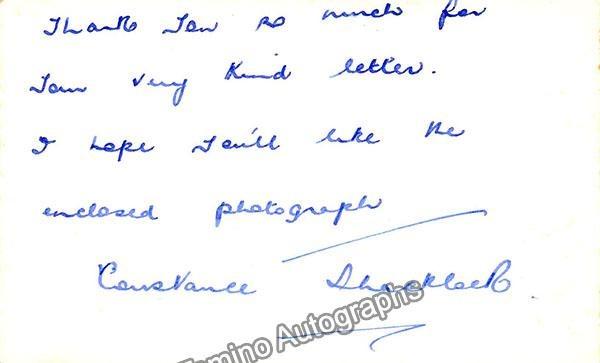 Thank you so much for
your very kind letter.
I hope you'll like the
enclosed photograph
Constance Shacklock
Tamino Autographs